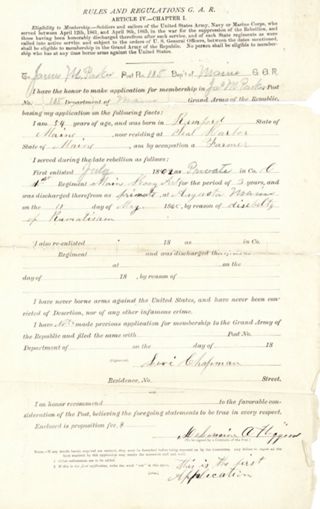 RULES AND REGULATIONS G. A. R.
ARTICLE IV.—CHAPTER I.
Eligibility to Membership.—Soldiers and sailors of the United States Army, Navy or Marine Corps, who
served between April 12th, 1861, and April 9th, 1865, in the war for the suppression of the Rebellion, and
those having been honorably discharged therefrom after such service, and of such State regiments as were
called into active service and subject to the orders of U. S. General Officers, between the dates mentioned,
shall be eligible to membership in the Grand Army of the Republic. No person shall be eligible to member-
ship who has at any time borne arms against the United States.
To James M Parker Post No. 185 Dep't of Maine G. A. R.
I have the honor to make application for membership in Jas M Parker Post
No. 185 Department of Maine Grand Army of the Republic,
basing my application on the following facts:
I am years of age, and was born in Rumford State of
Maine, now residing at Seal Harbor
State of Maine, am by occupation a Farmer
I served during the late rebellion as follows:
First enlisted July 18 as Private in Co. C
1st Regiment Maine Heavy for the period of 3 years, and
was discharged therefrom as private at Augusta Maine
on the day of May 186, by reason of
of
I also re-enlisted 18 as in Co.
Regiment and was discharged
at on the
day of 18 , by reason of
I have never borne arms against the United States, and have never been con-
victed of Desertion, nor of any other infamous crime.
I have made previous application for membership to the Grand Army of
the Republic and filed the same with Post No.
Department of on the day of 18
Signature, Levi Chapman
Residence, No. Street.
I am honor recommend to the favorable con-
sideration of the Post, believing the foregoing statements to be true in every respect.
Enclosed is proposition fee, $
A Higgins
This is the first
Application